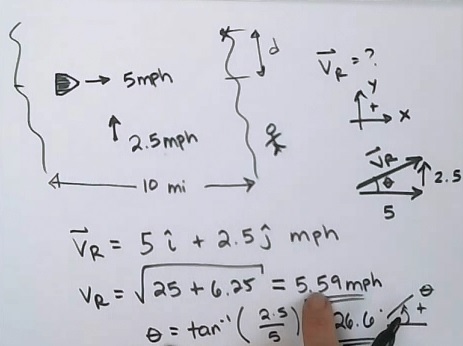 d
V_R = ?
5mph
y
+
x
2.5mph
V_R
θ
2.5
5
10 mi
V_R = 5 î + 2.5 ĵ mph
V_R = √25 + 6.25 = 5.59 mph
θ = tan⁻¹ (2.5/5) 26.6°
θ
+